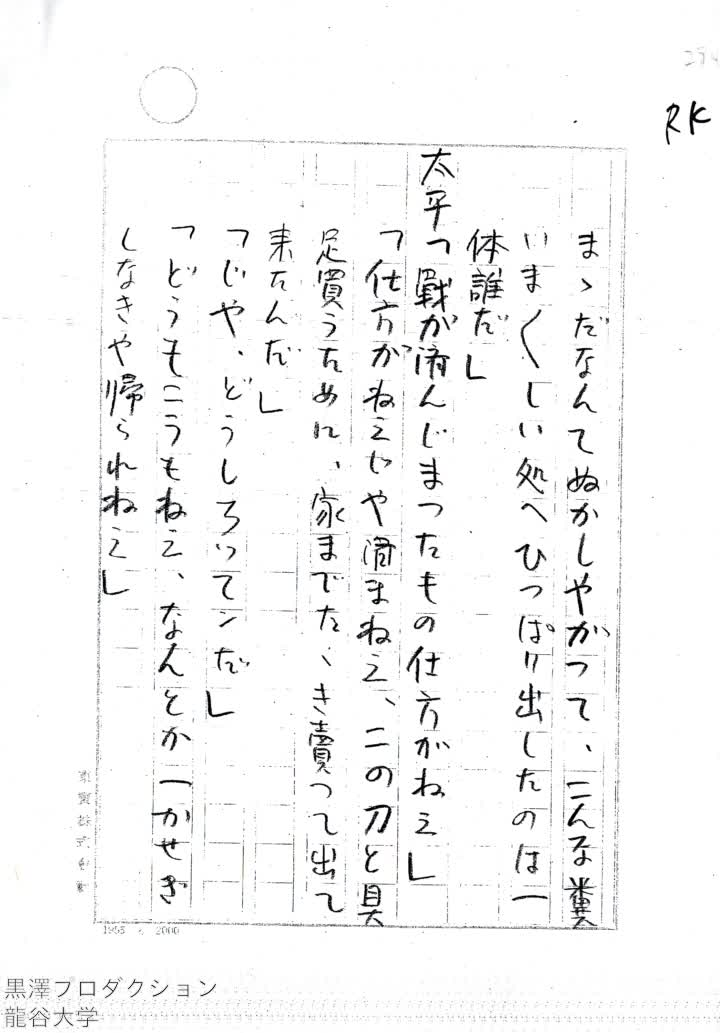 RK
まゝだなんてぬかしやがつて、こんな糞
いま〱しい処へひつぱり出したのは一
体誰だ」
太平「戰が済んじまつたもの仕方がねえ」
「仕方がねえじや済まねえ、この刀と具
足買うために、家までたゝき賣つて出て
来たんだ」
「じや、どうしろつてンだ」
「どうもこうもねえ、なんとか一かせぎ
しなきや帰られねえ」
黒澤プロダクション
龍谷大学